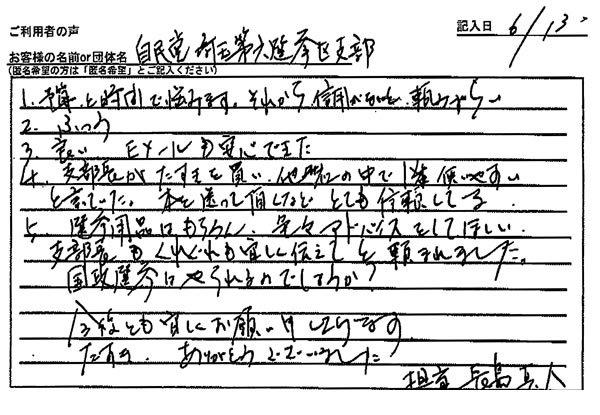 ご利用者の声
記入日 6/13
お客様の名前or団体名 自民党 埼玉第六選挙区支部
(匿名希望の方は「匿名希望」とご記入ください)
1. 予算と時間で悩みます。それから信用がないと頼みづらい
2. ふつう
3. 良い Eメールも安心できた
4. 支部長がたすきを買い、他社の中で1番使いやすい
と言っていた。本を送って頂したなど とても信頼してる
5. 選挙用品はもちろん、色々アドバイスをしてほしい
支部長もくれぐれも宜しく伝えてと頼まれました。
国政選挙はやられるのでしょうか?
今後とも宜しくお願い申しております
たすき、ありがとうございました
担当 長島